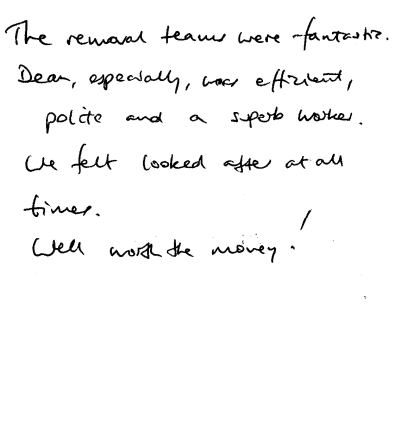 The removal teams were fantastic.
Dean, especially, was efficient,
polite and a superb worker.
We felt looked after at all
times.
Well worth the money!